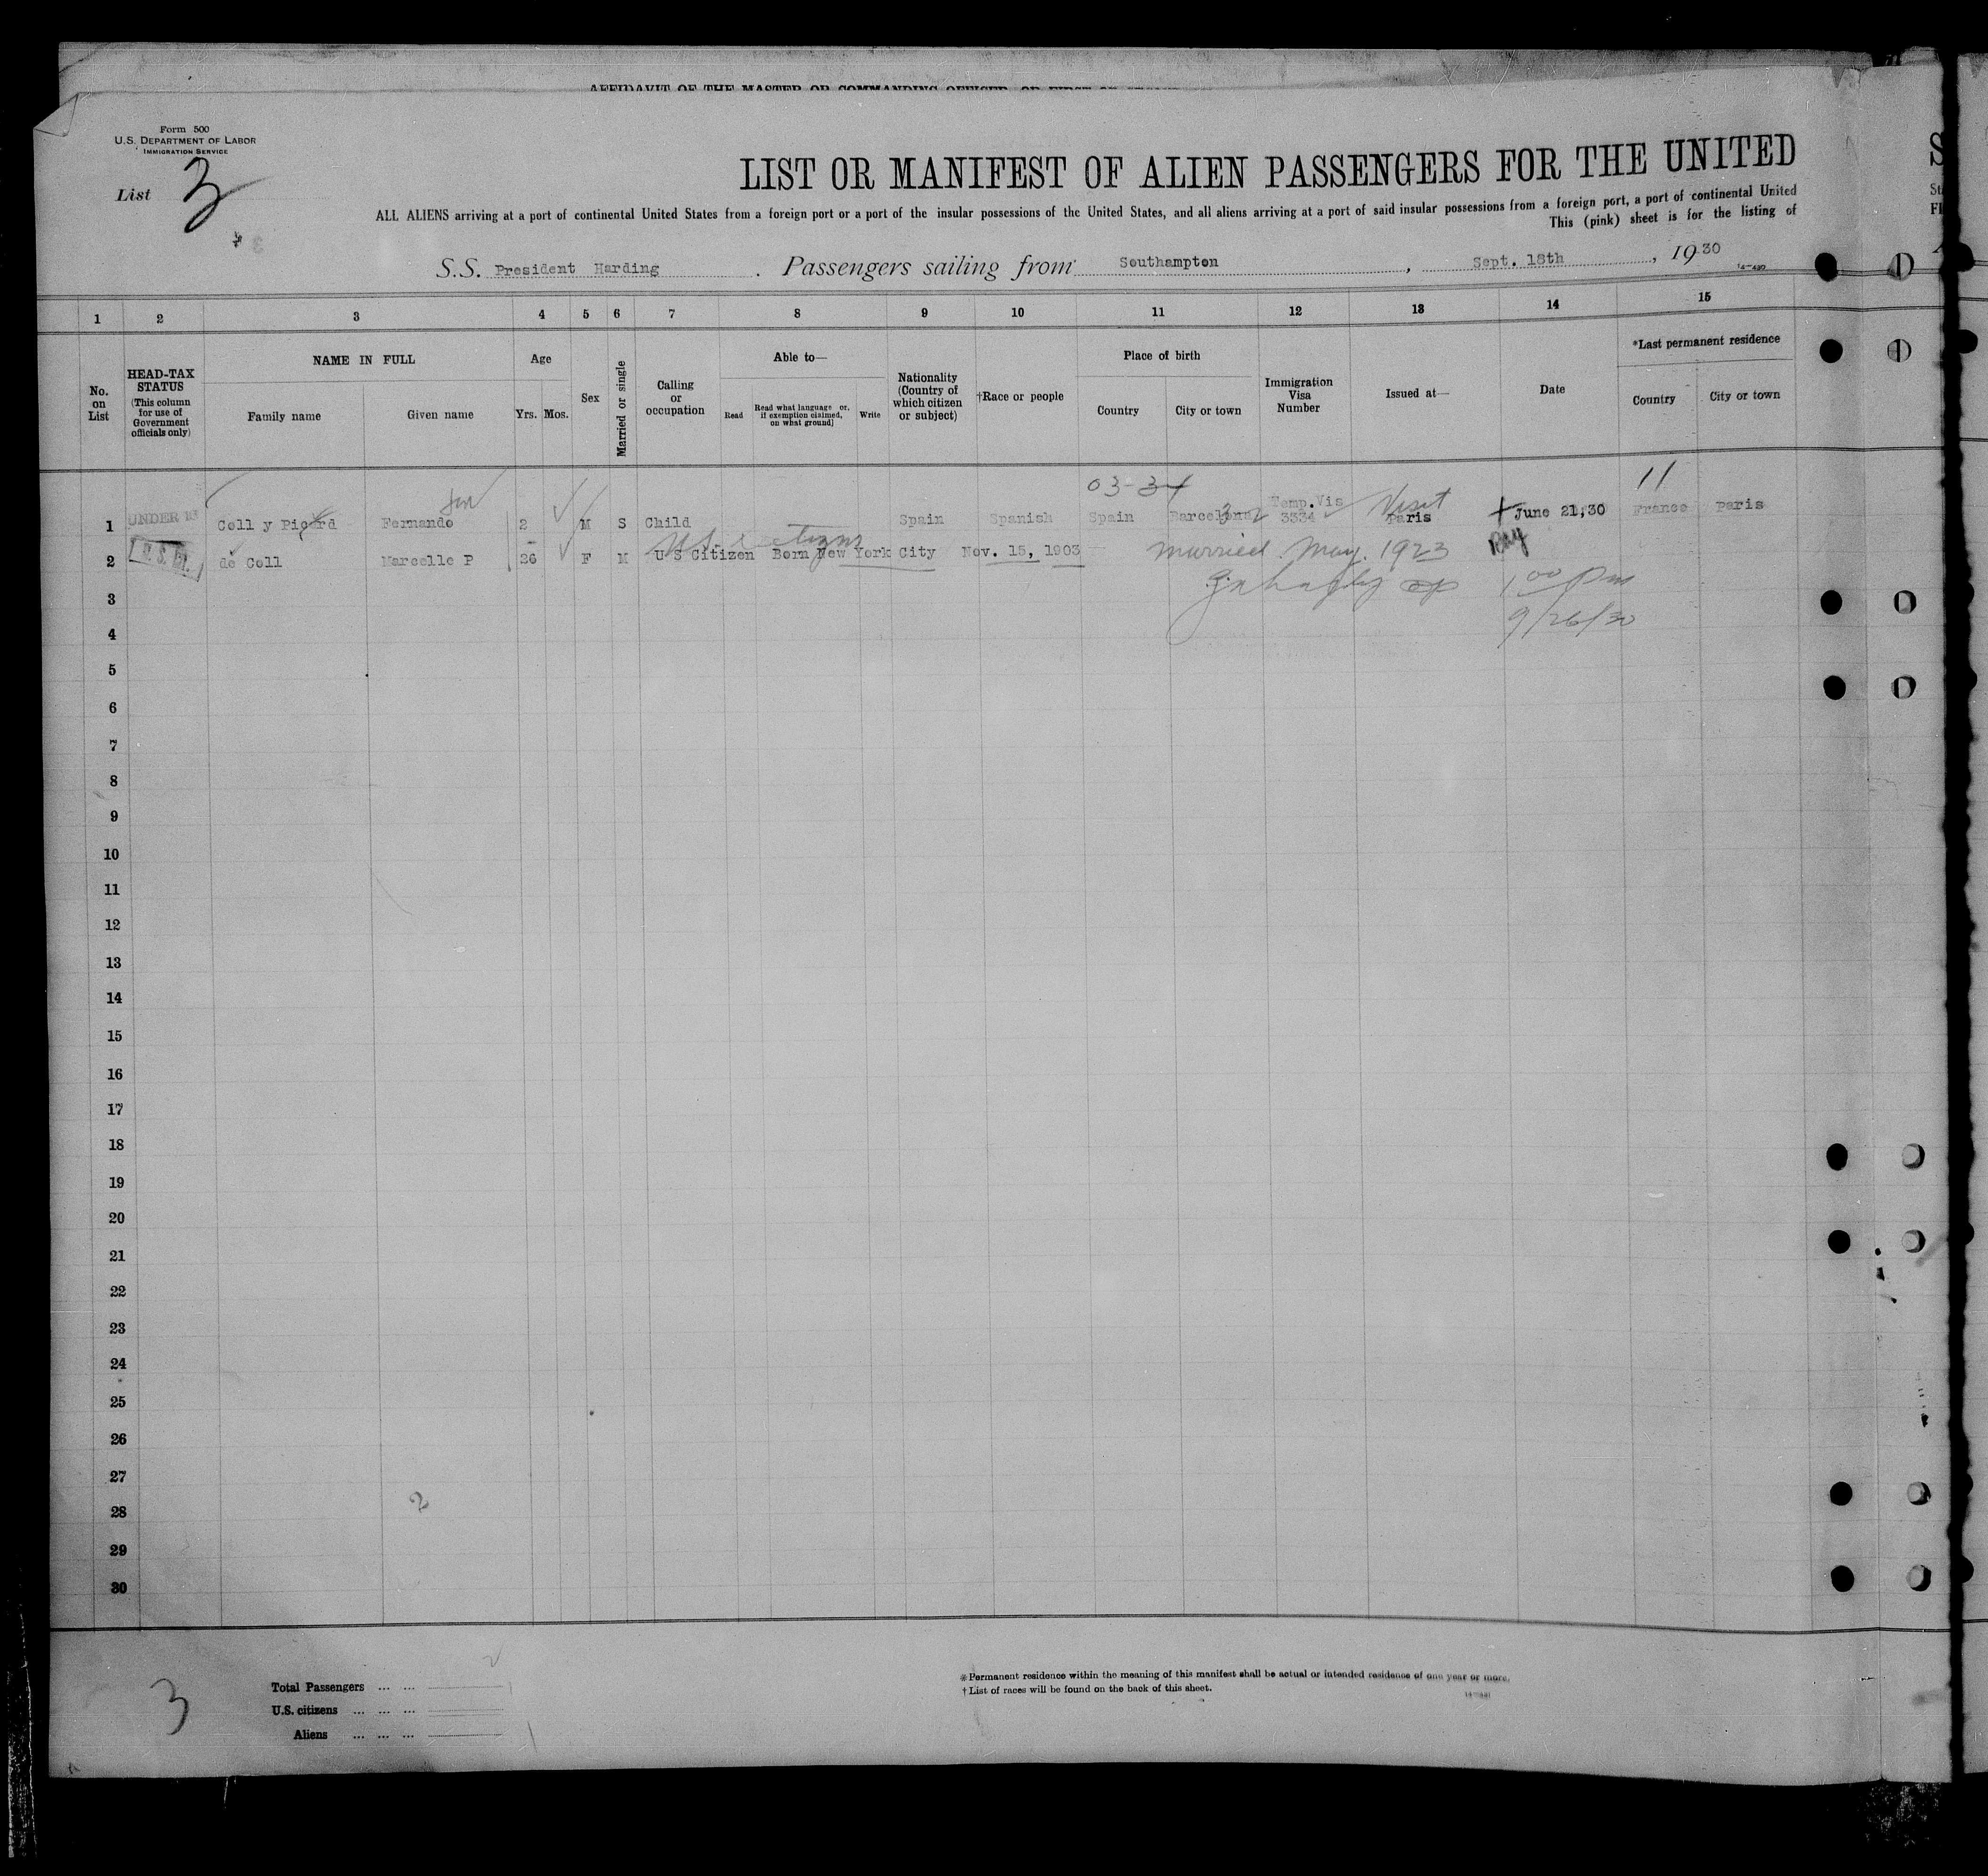 Form 500
U.S. DEPARTMENT OF LABOR
IMMIGRATION SERVICE
List 3
LIST OR MANIFEST OF ALIEN PASSENGERS FOR THE UNITED
ALL ALIENS arriving at a port of continental United States from a foreign port or a port of the insular possessions of the United States, and all aliens arriving at a port of said insular possessions from a foreign port, a port of continental United
This (pink) sheet is for the listing of
S.S. President Harding . Passengers sailing from Southampton , Sept. 18th , 1930
1 2 3 4 5 6 7 8 9 10 11 12 13 14 15
No. on List
HEAD-TAX STATUS (This column for use of Government officials only)
NAME IN FULL
Family name
Given name
Age
Yrs. Mos.
Sex
Married or single
Calling or occupation
Able to—
Read
Read what language or, if exemption claimed, on what ground
Write
Nationality (Country of which citizen or subject)
†Race or people
Place of birth
Country
City or town
Immigration Visa Number
Issued at—
Date
*Last permanent residence
Country
City or town
03-34
11
son
Temp.Vis
Visit
1 UNDER 16 Coll y Picard Fernando 2 M S Child Spain Spanish Spain Barcelona 3334 Paris June 21,30 France Paris
U.S. citizen
2 de Coll Marcelle P 26 F M U S Citizen Born New York City Nov. 15, 1903 married May. 1923
3
1 00 Pm
4
9/26/30
5
6
7
8
9
10
11
12
13
14
15
16
17
18
19
20
21
22
23
24
25
26
27
2
28
29
30
3
Total Passengers ... ...
U.S. citizens ... ... ...
Aliens ... ... ...
*Permanent residence within the meaning of this manifest shall be actual or intended residence of one year or more.
†List of races will be found on the back of this sheet.